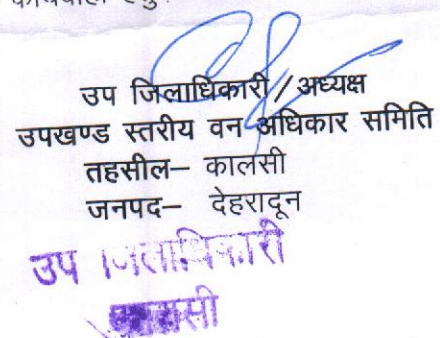 उप जिलाधिकारी / अध्यक्ष
उपखण्ड स्तरीय वन अधिकार समिति
तहसील– कालसी
जनपद– देहरादून
उप जिलाधिकारी
कालसी